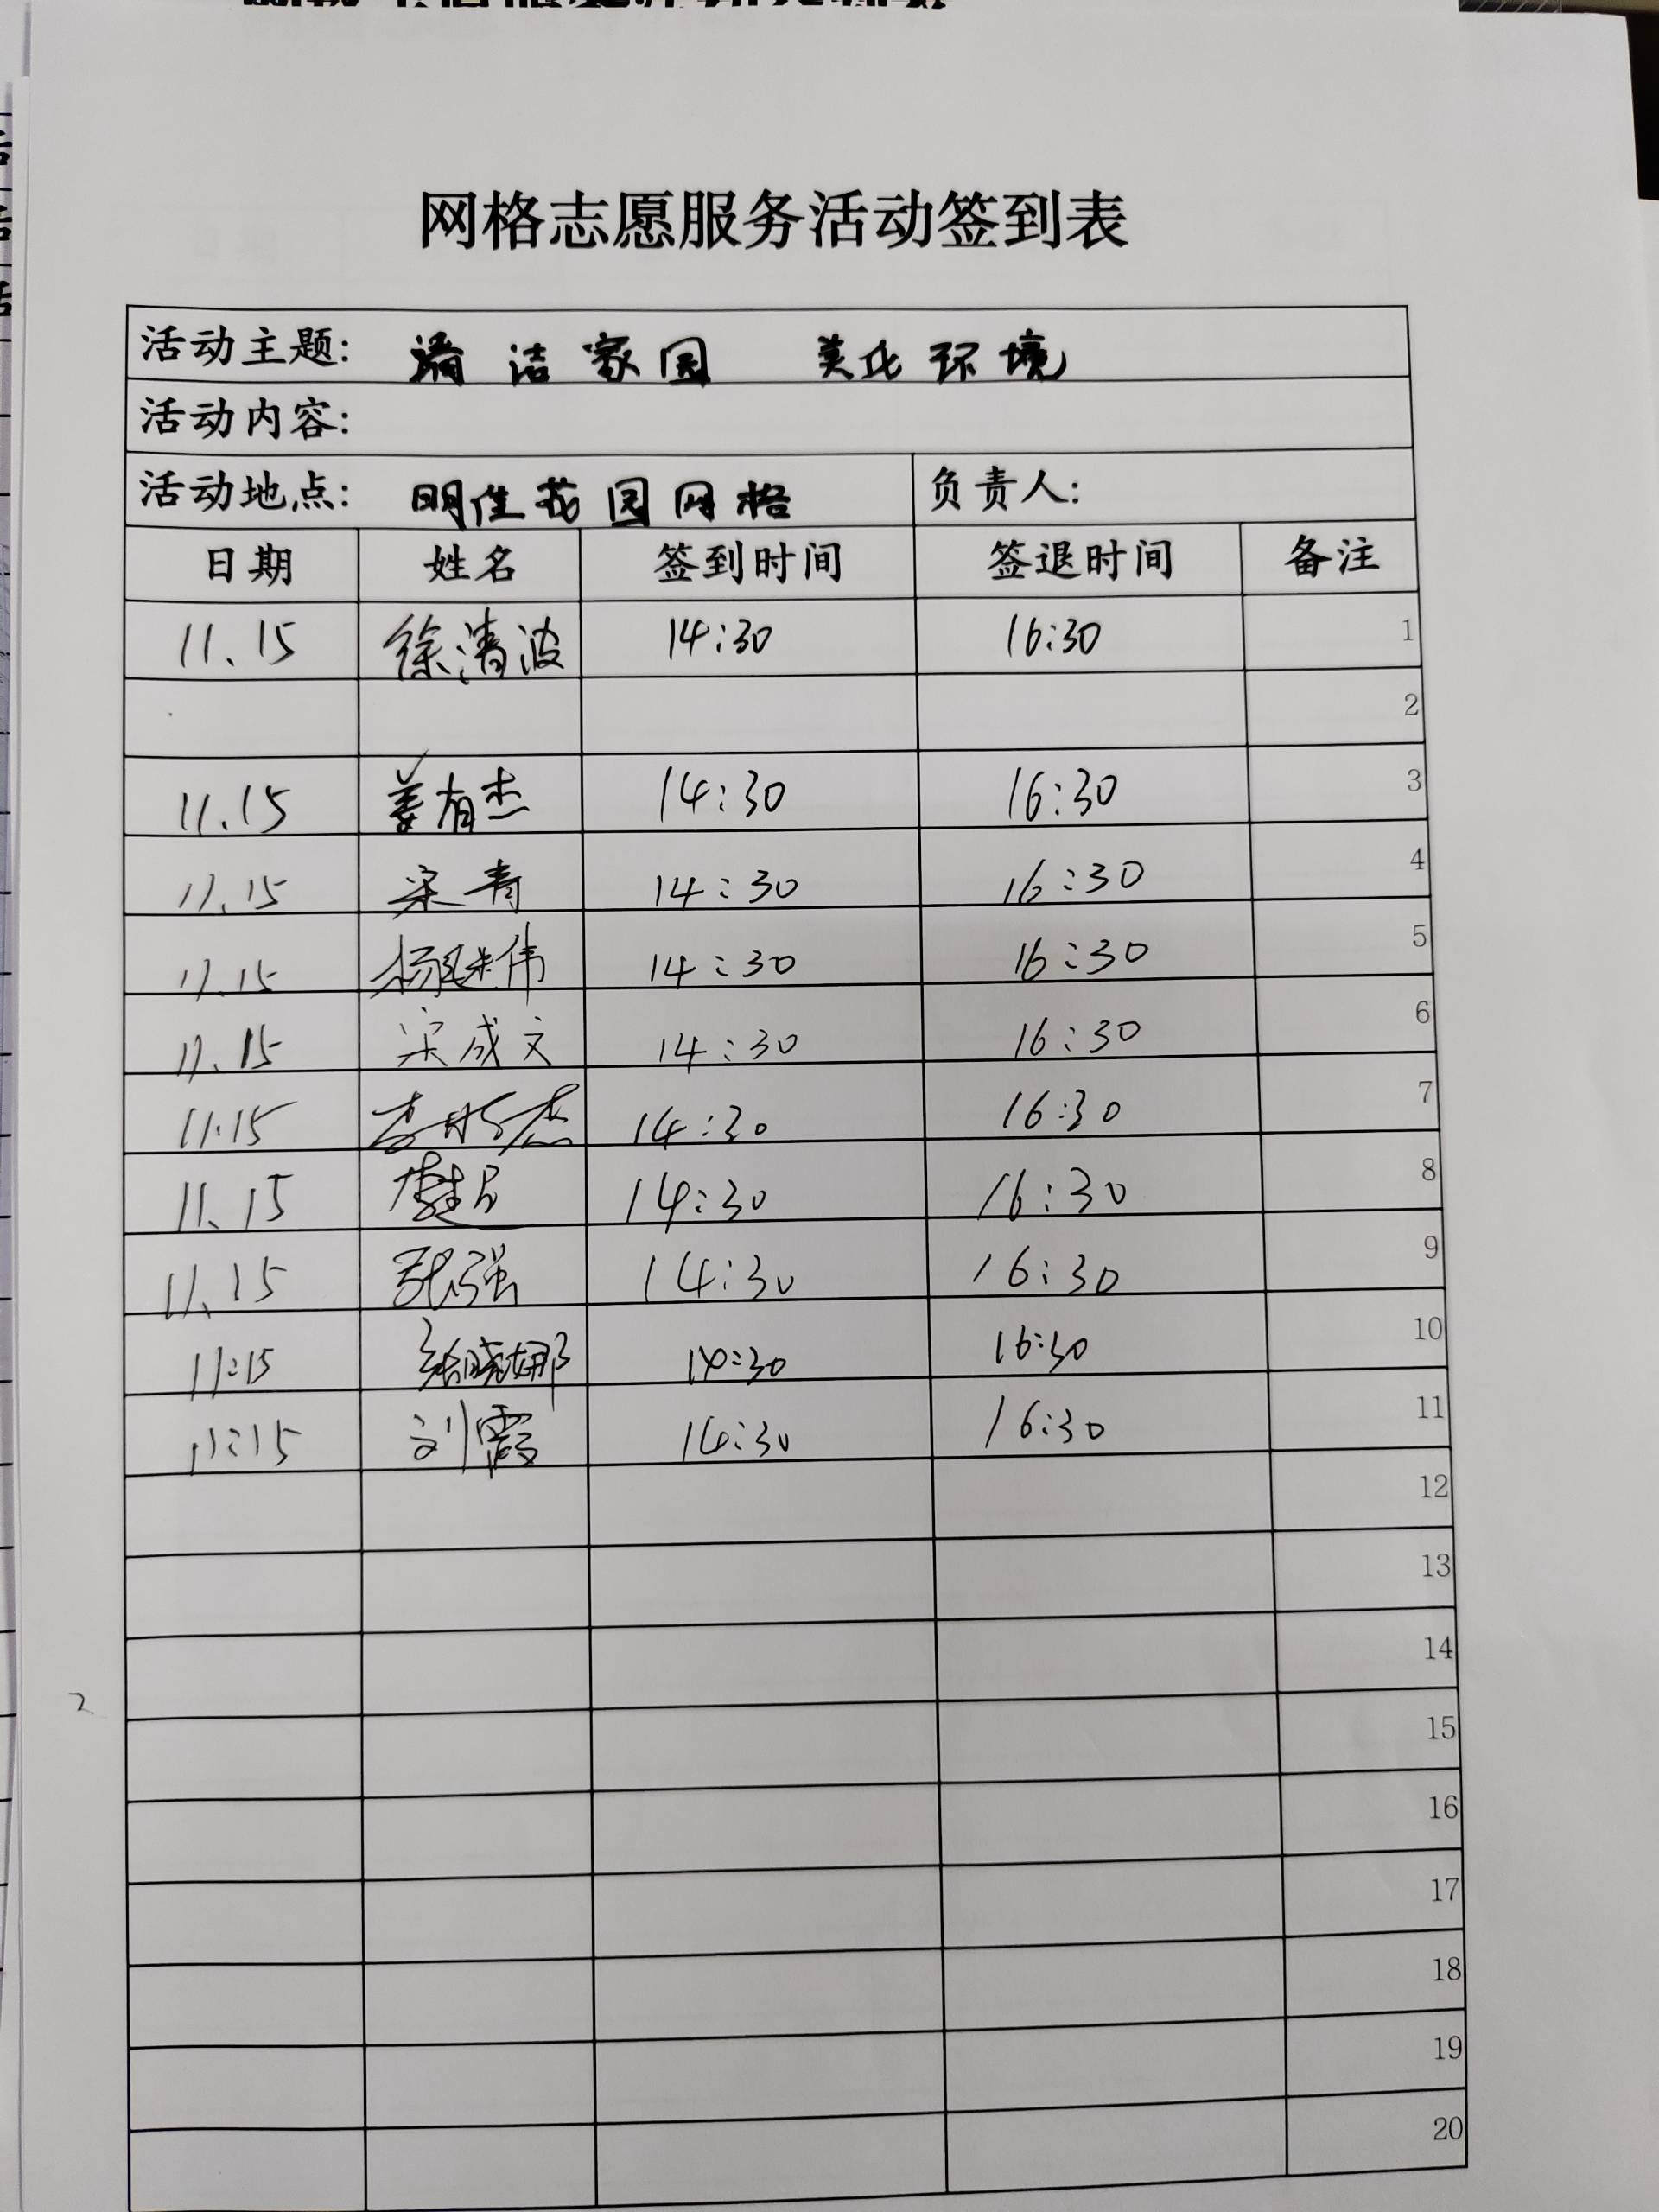 网格志愿服务活动签到表
活动主题: 清洁家园 美化环境
活动内容:
活动地点: 明佳花园网格 负责人:
日期 姓名 签到时间 签退时间 备注
11、15 徐清波 14:30 16:30 1
2
11.15 姜有杰 14:30 16:30 3
11.15 宋青 14:30 16:30 4
11.15 杨继伟 14:30 16:30 5
11.15 宋成文 14:30 16:30 6
11.15 14:30 16:30 7
11、15 14:30 16:30 8
11、15 张强 14:30 16:30 9
11:15 张晓娜 14:30 16:30 10
11:15 刘霞 14:30 16:30 11
12
13
14
2
15
16
17
18
19
20